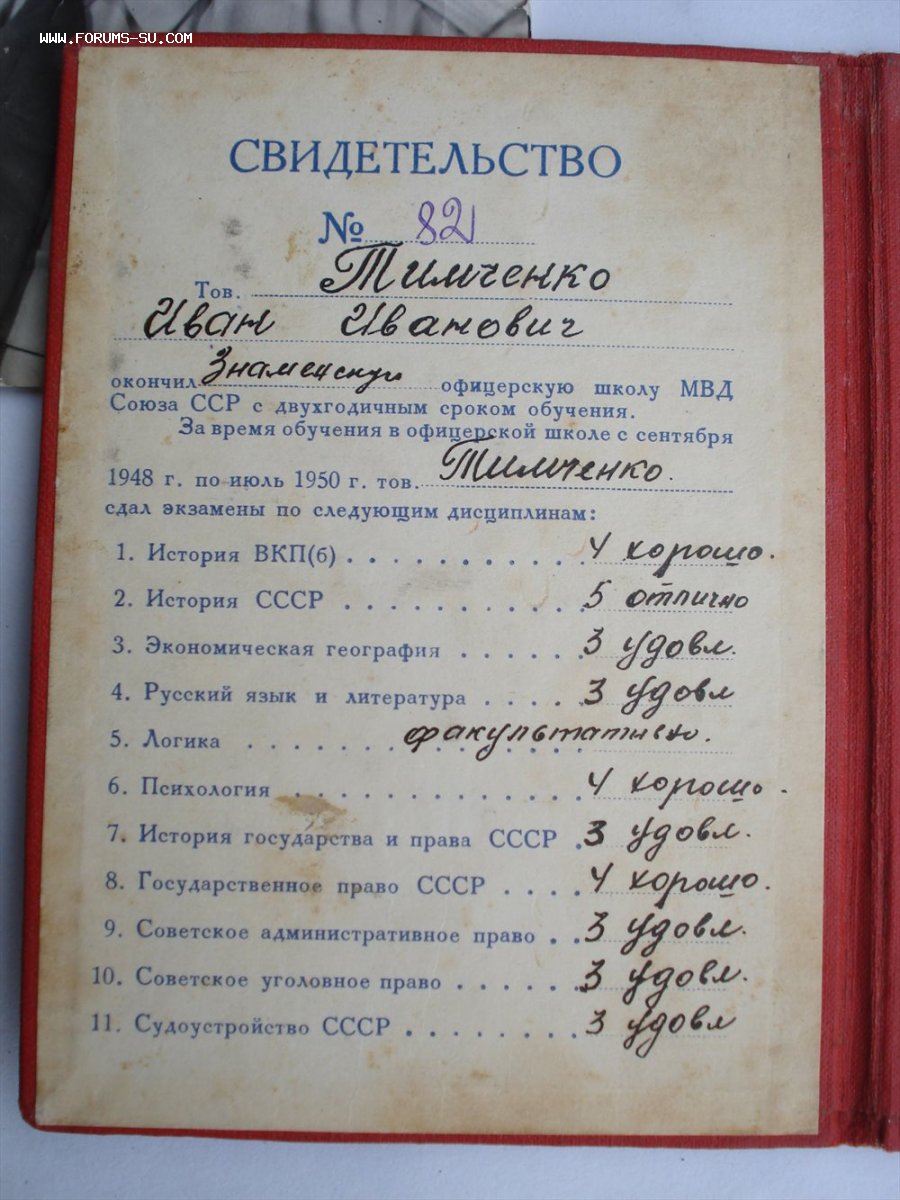 www.forums-su.com
СВИДЕТЕЛЬСТВО
№ 82
Тов. Тимченко
Иван Иванович
окончил Знаменскую офицерскую школу МВД
Союза ССР с двухгодичным сроком обучения.
За время обучения в офицерской школе с сентября
1948 г. по июль 1950 г. тов. Тимченко.
сдал экзамены по следующим дисциплинам:
1. История ВКП(б) . . . . . . . . . . . 4 хорошо.
2. История СССР . . . . . . . . . . . 5 отлично
3. Экономическая география . . . . . . 3 удовл.
4. Русский язык и литература . . . . . 3 удовл
5. Логика . . . . . . . факультативно.
6. Психология . . . . . . . . . . . . . 4 хорошо.
7. История государства и права СССР . 3 удовл.
8. Государственное право СССР . . . . 4 хорошо.
9. Советское административное право . . 3 удовл.
10. Советское уголовное право . . . . . . 3 удовл.
11. Судоустройство СССР . . . . . . . . 3 удовл